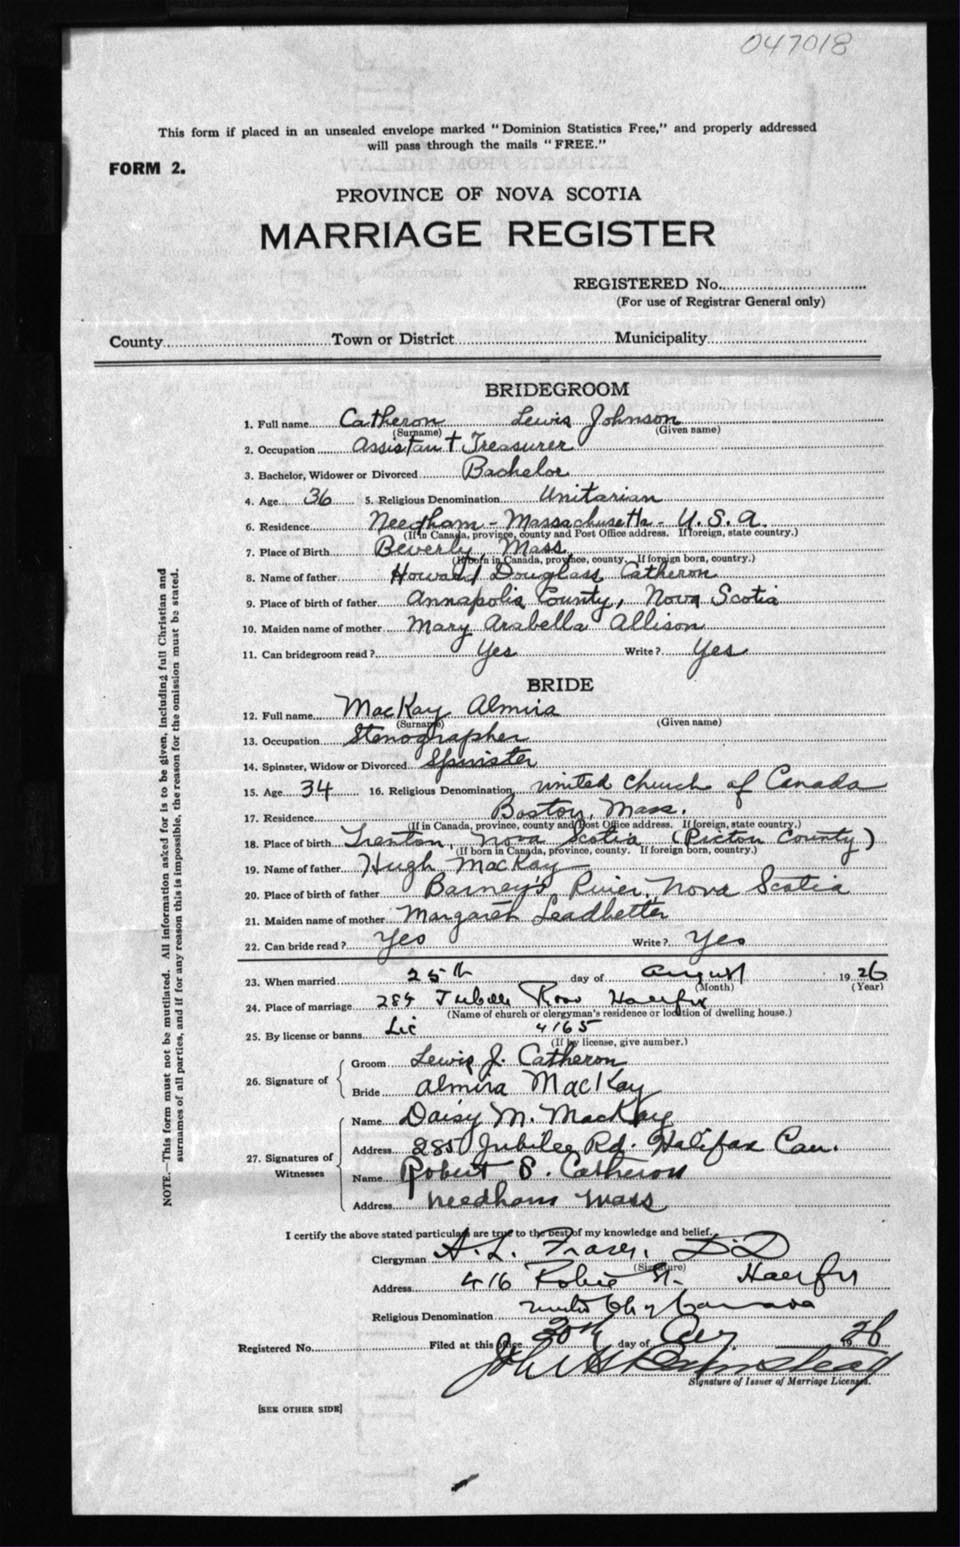 047018
This form if placed in an unsealed envelope marked "Dominion Statistics Free," and properly addressed
will pass through the mails "FREE."
FORM 2.
PROVINCE OF NOVA SCOTIA
MARRIAGE REGISTER
REGISTERED No.
(For use of Registrar General only)
County Town or District Municipality
BRIDEGROOM
1. Full name Catheron Lewis Johnson
(Surname) (Given name)
2. Occupation Assistant Treasurer
3. Bachelor, Widower or Divorced Bachelor
4. Age 36 5. Religious Denomination Unitarian
6. Residence Needham - Massachusetts - U.S.A.
(If in Canada, province, county and Post Office address. If foreign, state country.)
7. Place of Birth Beverly, Mass.
(If born in Canada, province, county. If foreign born, country.)
8. Name of father Howard Douglass Catheron
9. Place of birth of father Annapolis County, Nova Scotia
10. Maiden name of mother Mary Arabella Allison
11. Can bridegroom read? Yes Write? Yes
BRIDE
12. Full name MacKay Almira
(Surname) (Given name)
13. Occupation Stenographer
14. Spinster, Widow or Divorced Spinster
15. Age 34 16. Religious Denomination United Church of Canada
17. Residence Boston, Mass.
(If in Canada, province, county and Post Office address. If foreign, state country.)
18. Place of birth Trenton, Nova Scotia (Pictou County)
(If born in Canada, province, county. If foreign born, country.)
19. Name of father Hugh MacKay
20. Place of birth of father Barney's River, Nova Scotia
21. Maiden name of mother Margaret Leadbetter
22. Can bride read? Yes Write? Yes
23. When married 25th day of August 1926
(Month) (Year)
24. Place of marriage Jubilee Road Halifax
(Name of church or clergyman's residence or location of dwelling house.)
25. By license or banns Lic 4165
(If by license, give number.)
26. Signature of
Groom Lewis J. Catheron
Bride Almira MacKay
27. Signatures of Witnesses
Name Daisy M. MacKay
Address 285 Jubilee Rd. Halifax Can.
Name Robert S. Catheron
Address Needham Mass
I certify the above stated particulars are true to the best of my knowledge and belief.
Clergyman A. L. Fraser, D.D
(Signature)
Address 416 Robie St. Halifax
Religious Denomination United Ch of Canada
Registered No. Filed at this office day of Aug. 1926
Signature of Issuer of Marriage Licenses.
[SEE OTHER SIDE]
NOTE.—This form must not be mutilated. All information asked for is to be given, including full Christian and
surnames of all parties, and if for any reason this is impossible, the reason for the omission must be stated.